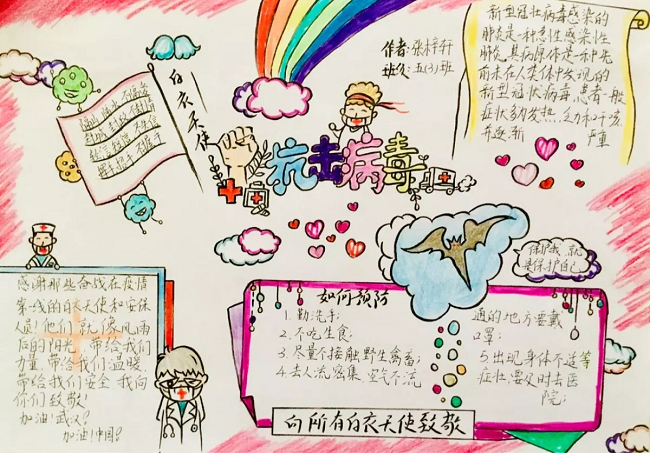 白衣天使
作者:张梓轩
班级:五(3)班
抗击病毒
新型冠壮病毒感染的
肺炎是一种急性感染性
肺炎,其病原体是一种先
前未在人类体中发现的
新型冠状病毒.患者一般
症状多为发热,乏力和干咳
并逐渐 严重
保护我,就
是保护自己
感谢那些奋战在疫情
第一线的白衣天使和安保
人员!他们就像风雨
后的阳光,带给我们
力量,带给我们温暖
带给我们安全 我向
你们致敬!
加油!武汉!
加油!中国!
如何预防
1.勤洗手;
2.不吃生食;
3.尽量不接触野生禽畜;
4.去人流密集 空气不流
通的地方要戴
口罩;
5.出现身体不适等
症壮要及时去医
院;
向所有白衣天使致敬